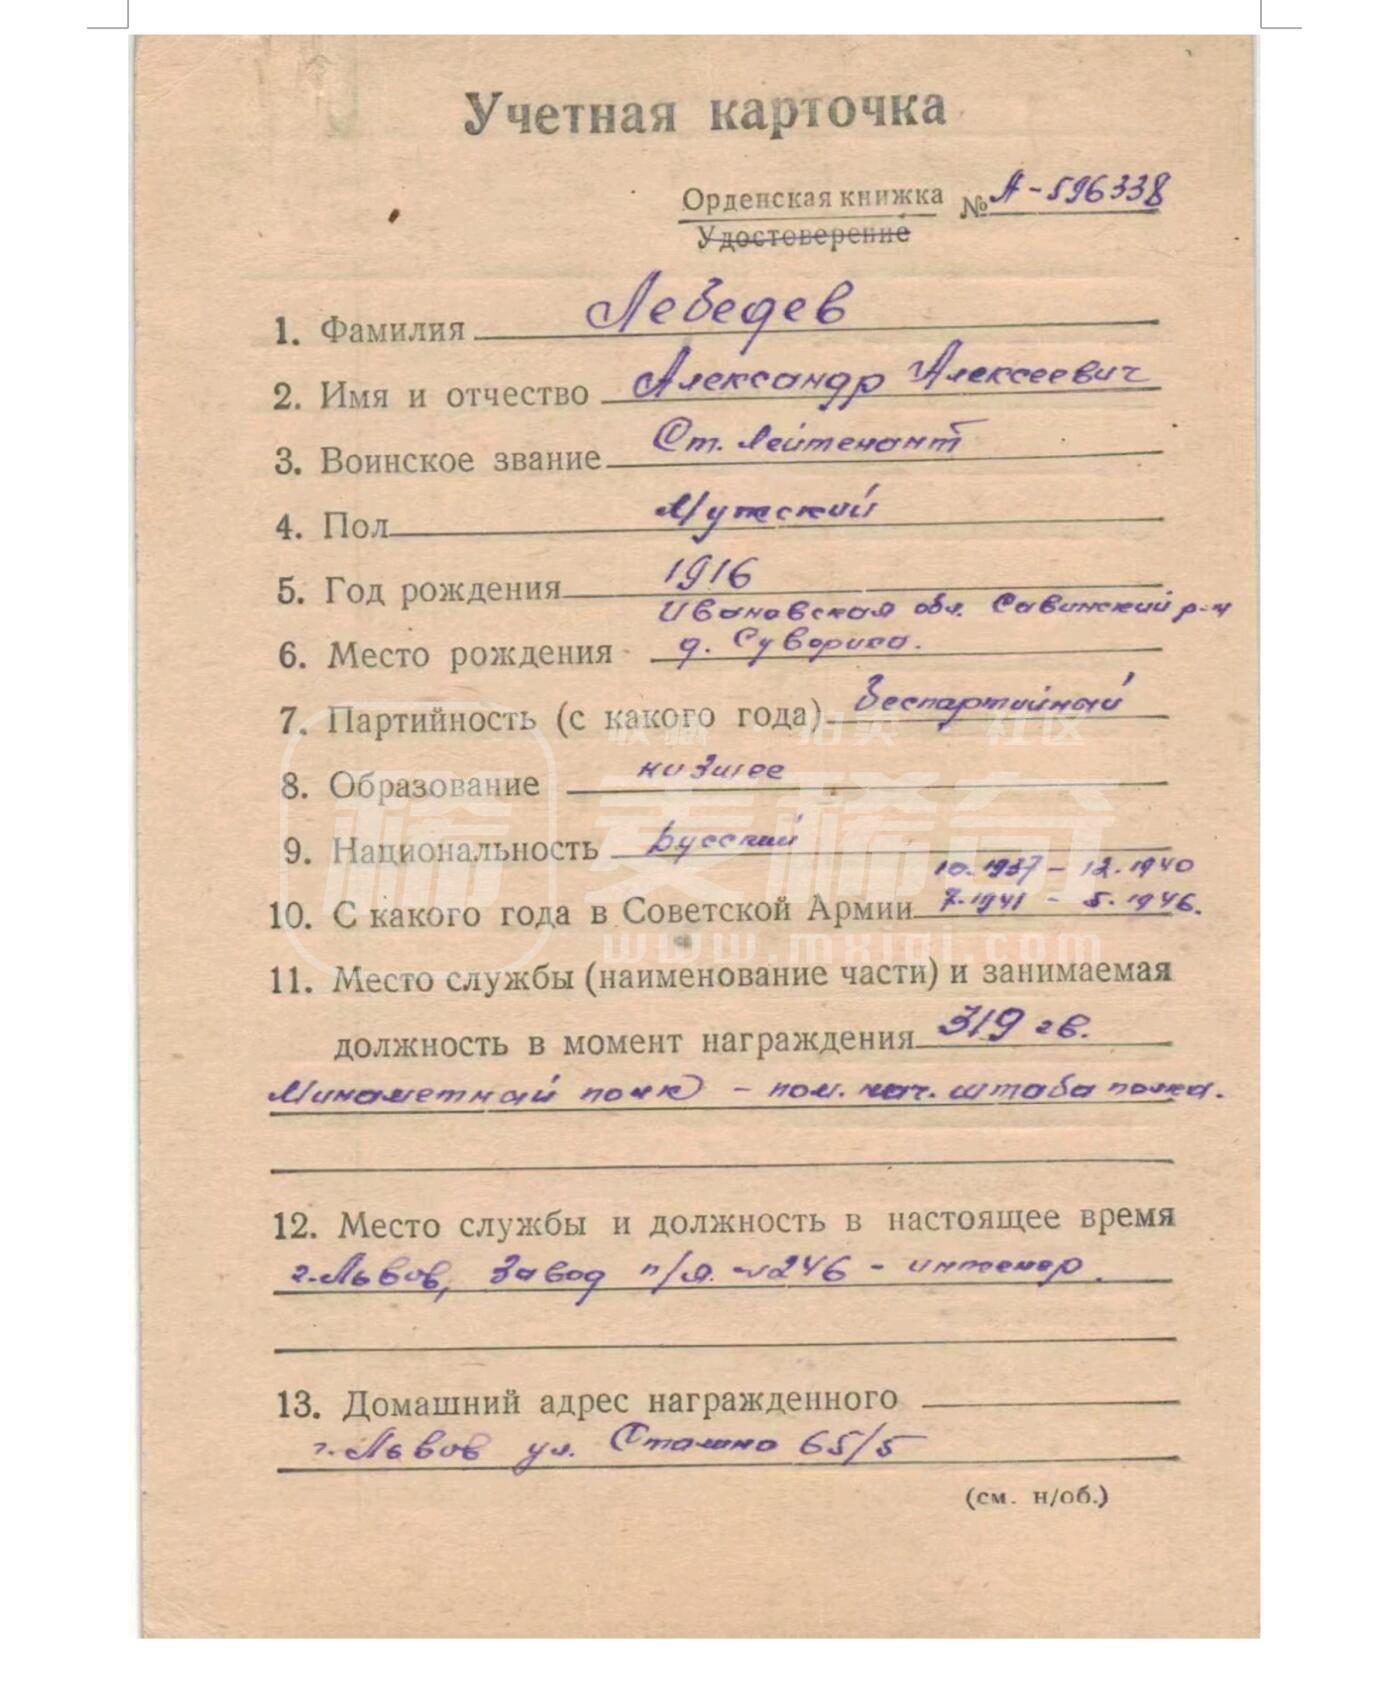 Учетная карточка
Орденская книжка № А-596338
Удостоверение
1. Фамилия Лебедев
2. Имя и отчество Александр Алексеевич
3. Воинское звание Ст. лейтенант
4. Пол Мужской
5. Год рождения 1916
Ивановская обл. Савинский р-н
6. Место рождения д.
7. Партийность (с какого года) Беспартийный
8. Образование низшее
9. Национальность Русский
10.1937 - 12.1940
10. С какого года в Советской Армии 7.1941 - 5.1946.
11. Место службы (наименование части) и занимаемая
должность в момент награждения 319 гв.
Минометный полк - пом. нач. штаба полка.
12. Место службы и должность в настоящее время
г. Львов, Завод п/я. №246 - инженер.
13. Домашний адрес награжденного
г. Львов ул. 65/5
(см. н/об.)
收藏 · 拍卖 · 社区
稀 麦稀奇
www.mxiqi.com